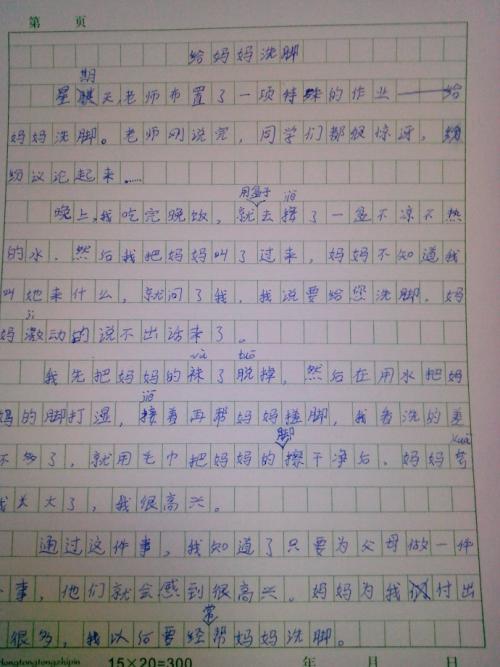 第 页
给妈妈洗脚
期
星天,老师布置了一项特殊的作业——给
妈妈洗脚。老师刚说完,同学们都很惊讶,纷
纷议论起来……
用盆子 jiē
晚上,我吃完晚饭,就去接了一盆不凉不热
的水,然后我把妈妈叫了过来,妈妈不知道我
叫她来什么,就问了我,我说要给您洗脚,妈
jī
妈激动的说不出话来了。
wà tuō
我先把妈妈的袜了脱掉,然后在用水把妈
jiē
妈的脚打湿,接着再帮妈妈搓脚,我看洗的差
脚 kuā
不多了,就用毛巾把妈妈的擦干净后,妈妈夸
我长大了,我很高兴。
通过这件事,我知道了只要为父母做一件
事,他们就会感到很高兴。妈妈为我付出
常
很多,我以后要经帮妈妈洗脚。
15×20=300 年 月 日